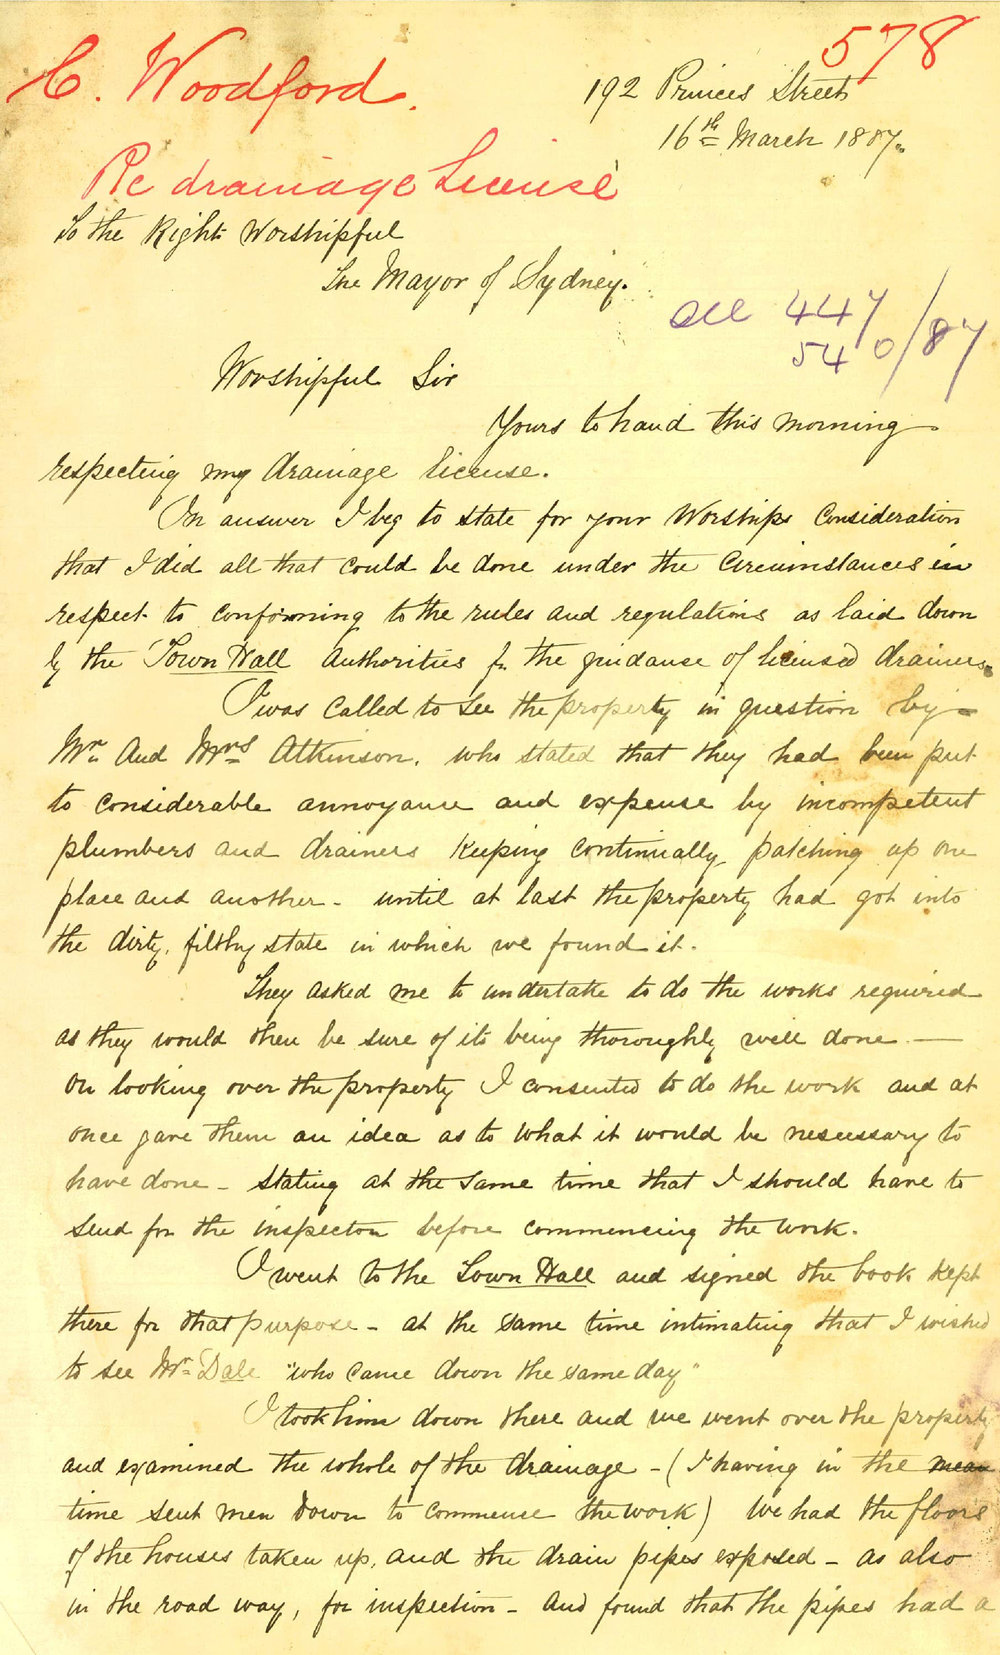 578
C. Woodford.
192 Princes Street
16th March 1887.
Re drainage License
To the Right Worshipful
The Mayor of Sydney.
See 447
540/87
Worshipful Sir
Yours to hand this morning
respecting my drainage license.
In answer I beg to state for your Worships Consideration
that I did all that could be done under the Circumstances in
respect to conforming to the rules and regulations as laid down
by the Town Hall Authorities for the guidanse of licensed drainers.
I was Called to see the property in question by
Mr. And Mrs Atkinson. who stated that they had been put
to considerable annoyance and expense by incompetent
plumbers and drainers Keeping continually patching up one
place and another - until at last the property had got into
the dirty, filthy state in which we found it.
They asked me to undertake to do the works required
as they would then be sure of its being thoroughly well done —
On looking over the property I consented to do the work and at
once gave them an idea as to what it would be nescessary to
have done - stating at the same time that I should have to
send for the inspector before commencing the work.
I went to the Town Hall and signed the book Kept
there for that purpose - at the same time intimating that I wished
to see Mr. Dale "who came down the same day"
I took him down there and we went over the property
and examined the whole of the drainage - (I having in the mean
time sent men down to commence the work) We had the floors
of the houses taken up, and the drain pipes exposed - as also
in the road way, for inspection - And found that the pipes had a